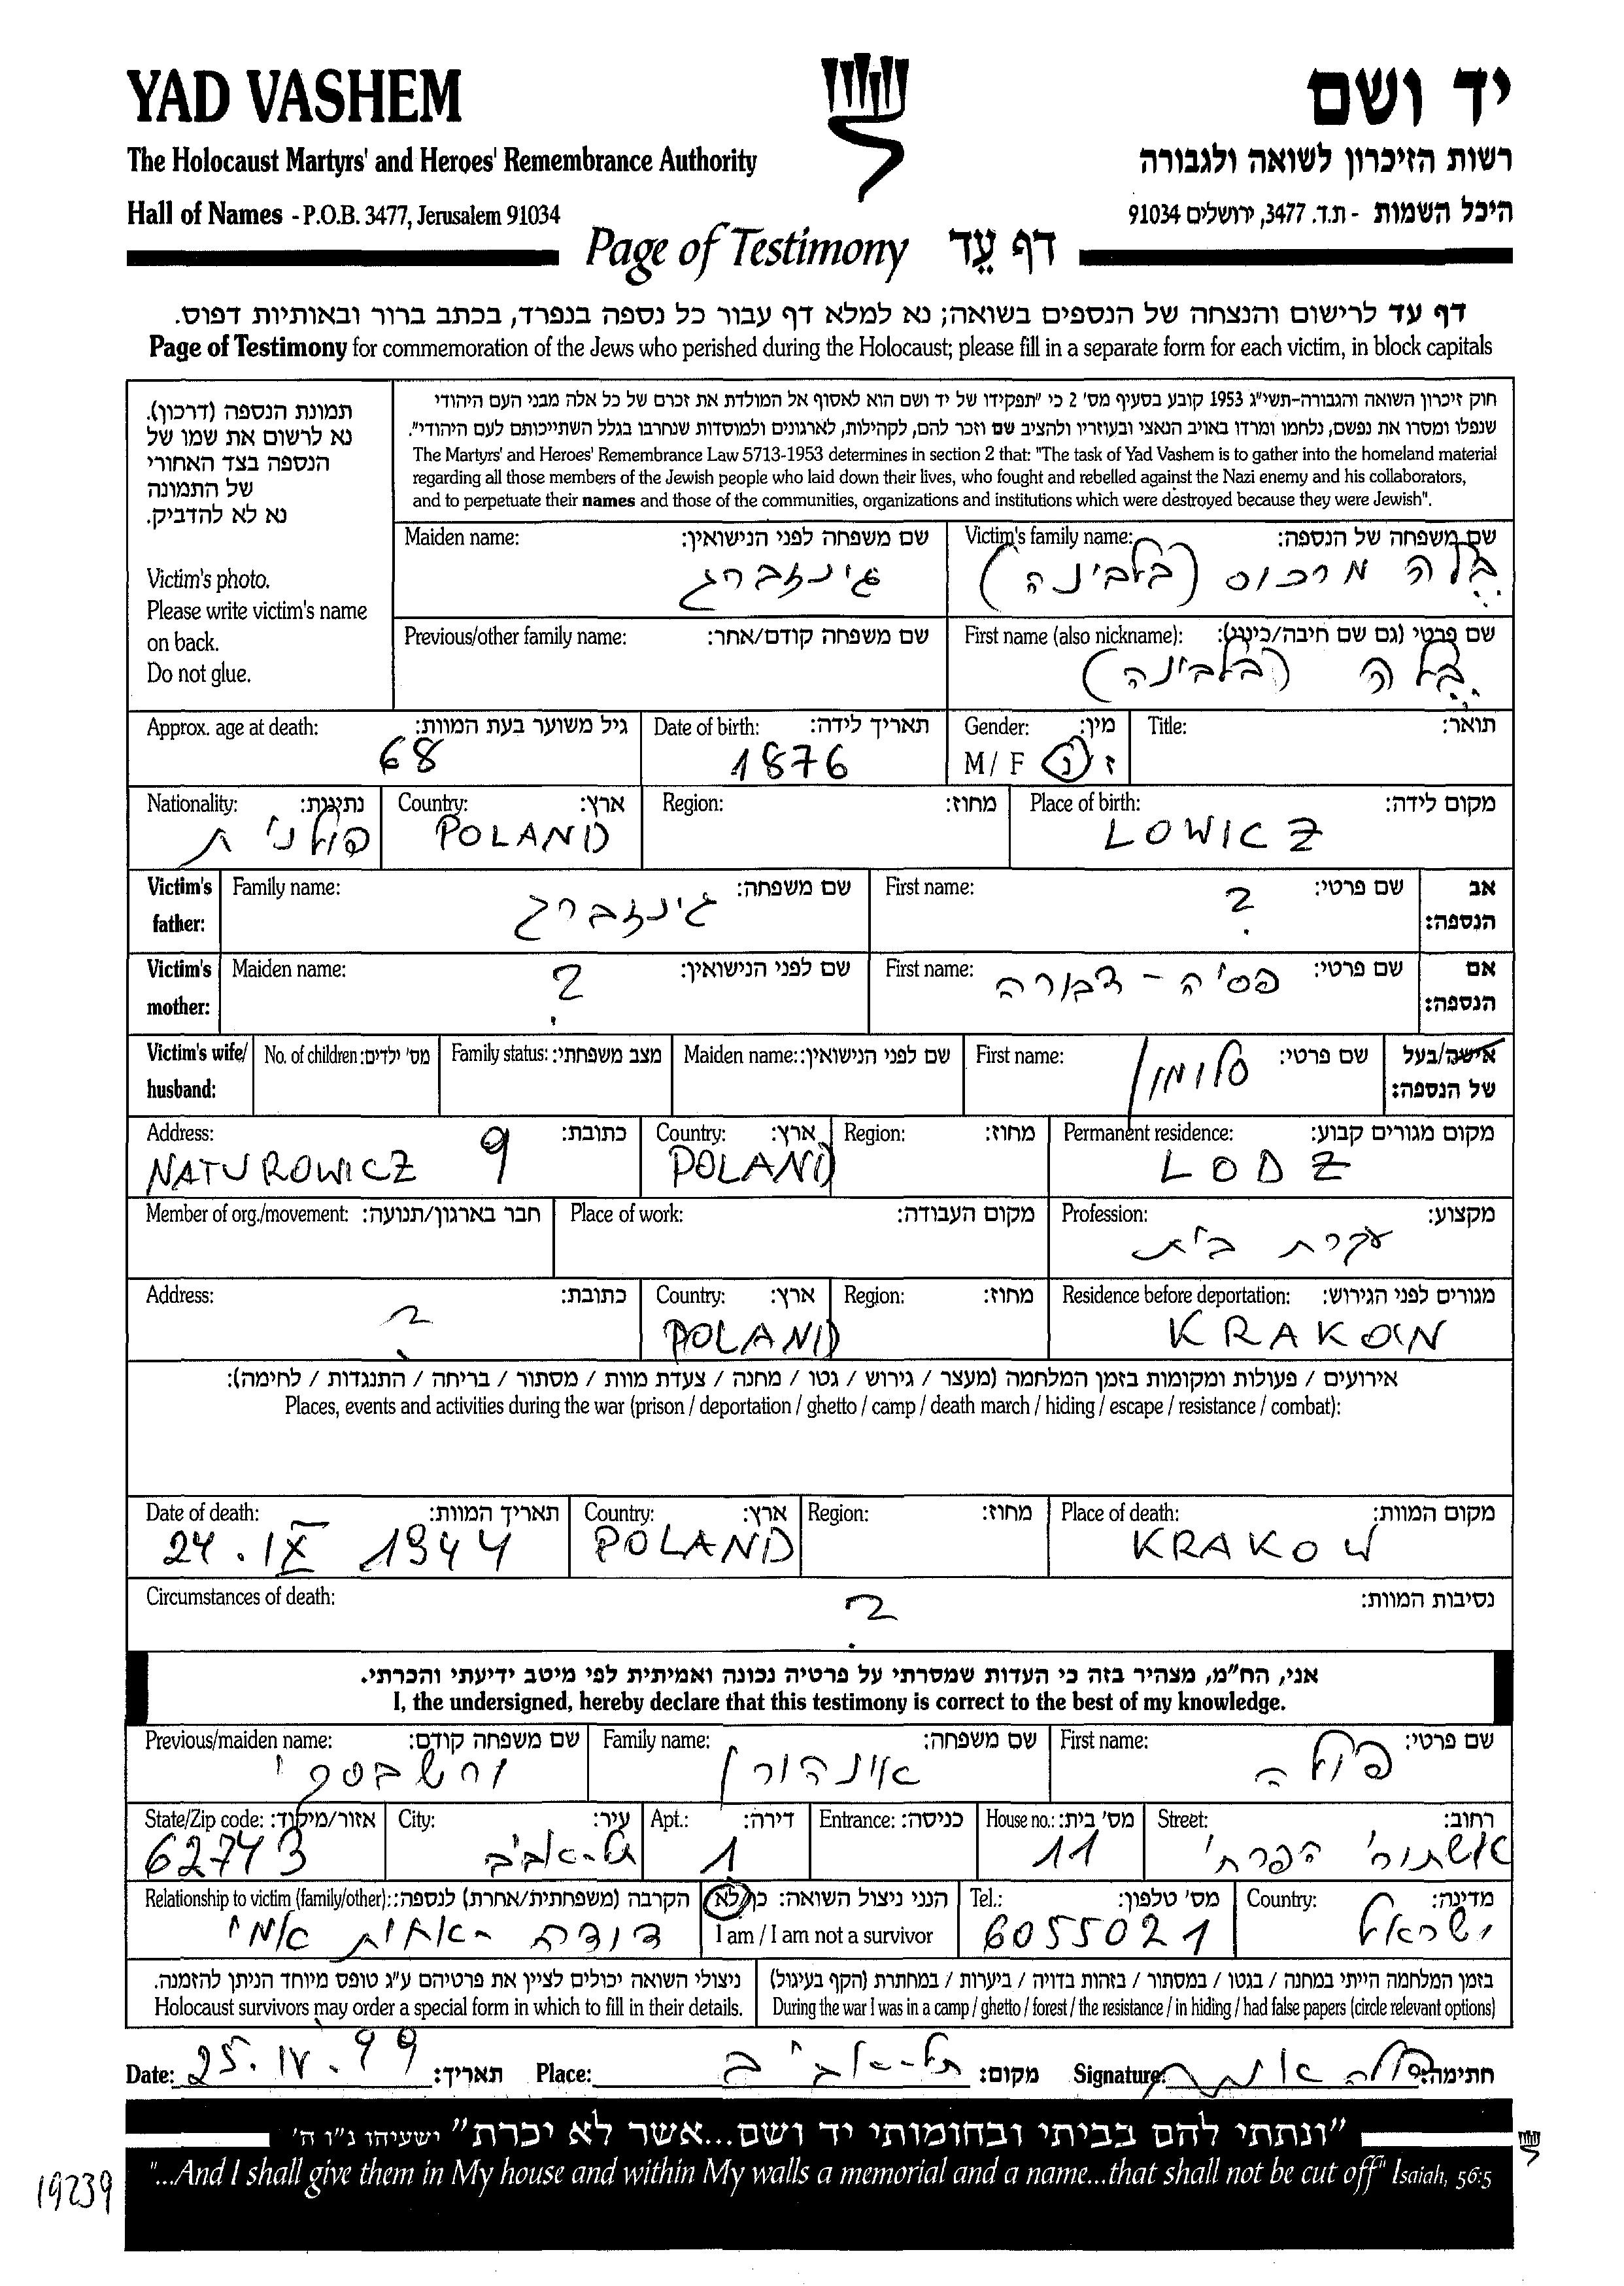 YAD VASHEM
יד ושם
The Holocaust Martyrs' and Heroes' Remembrance Authority
רשות הזיכרון לשואה ולגבורה
Hall of Names - P.O.B. 3477, Jerusalem 91034
היכל השמות - ת.ד. 3477, ירושלים 91034
Page of Testimony דף עֵד
דף עד לרישום והנצחה של הנספים בשואה; נא למלא דף עבור כל נספה בנפרד, בכתב ברור ובאותיות דפוס.
Page of Testimony for commemoration of the Jews who perished during the Holocaust; please fill in a separate form for each victim, in block capitals
תמונת הנספה (דרכון).
נא לרשום את שמו של
הנספה בצד האחורי
של התמונה
נא לא להדביק.
Victim's photo.
Please write victim's name
on back.
Do not glue.
חוק זיכרון השואה והגבורה-תשי"ג 1953 קובע בסעיף מס' 2 כי "תפקידו של יד ושם הוא לאסוף אל המולדת את זכרם של כל אלה מבני העם היהודי
שנפלו ומסרו את נפשם, נלחמו ומרדו באויב הנאצי ובעוזריו ולהציב שם וזכר להם, לקהילות, לארגונים ולמוסדות שנחרבו בגלל השתייכותם לעם היהודי".
The Martyrs' and Heroes' Remembrance Law 5713-1953 determines in section 2 that: "The task of Yad Vashem is to gather into the homeland material
regarding all those members of the Jewish people who laid down their lives, who fought and rebelled against the Nazi enemy and his collaborators,
and to perpetuate their names and those of the communities, organizations and institutions which were destroyed because they were Jewish".
Victim's family name: שם משפחה של הנספה:
בלה מרכוס (בלבינה)
Maiden name: שם משפחה לפני הנישואין:
גינזברג
First name (also nickname): שם פרטי (גם שם חיבה/כינוי):
בלה (בלבינה)
Previous/other family name: שם משפחה קודם/אחר:
Title: תואר:
Gender: מין:
M / F ז נ
Date of birth: תאריך לידה:
1876
Approx. age at death: גיל משוער בעת המוות:
68
Place of birth: מקום לידה:
LOWICZ
Region: מחוז:
Country: ארץ:
POLAND
Nationality: נתינות:
פולנית
Victim's father: אב הנספה:
First name: שם פרטי:
?
Family name: שם משפחה:
גינזברג
Victim's mother: אם הנספה:
First name: שם פרטי:
פסיה - דבורה
Maiden name: שם לפני הנישואין:
?
Victim's wife/ husband: אישה/בעל של הנספה:
First name: שם פרטי:
סלומון
Maiden name: שם לפני הנישואין:
Family status: מצב משפחתי:
No. of children: מס' ילדים:
Permanent residence: מקום מגורים קבוע:
LODZ
Region: מחוז:
Country: ארץ:
POLAND
Address: כתובת:
NATUROWICZ 9
Profession: מקצוע:
עקרת בית
Place of work: מקום העבודה:
Member of org./movement: חבר בארגון/תנועה:
Residence before deportation: מגורים לפני הגירוש:
KRAKOW
Region: מחוז:
Country: ארץ:
POLAND
Address: כתובת:
?
אירועים / פעולות ומקומות בזמן המלחמה (מעצר / גירוש / גטו / מחנה / צעדת מוות / מסתור / בריחה / התנגדות / לחימה):
Places, events and activities during the war (prison / deportation / ghetto / camp / death march / hiding / escape / resistance / combat):
Place of death: מקום המוות:
KRAKOW
Region: מחוז:
Country: ארץ:
POLAND
Date of death: תאריך המוות:
24. IX 1944
Circumstances of death: נסיבות המוות:
?
אני, הח"מ, מצהיר בזה כי העדות שמסרתי על פרטיה נכונה ואמיתית לפי מיטב ידיעתי והכרתי.
I, the undersigned, hereby declare that this testimony is correct to the best of my knowledge.
First name: שם פרטי:
פולה
Family name: שם משפחה:
אינהורן
Previous/maiden name: שם משפחה קודם:
ורשבסקי
Street: רחוב:
הפרחי
House no.: מס' בית:
11
Entrance: כניסה:
Apt.: דירה:
1
City: עיר:
תל-אביב
State/Zip code: אזור/מיקוד:
62743
Country: מדינה:
ישראל
Tel.: מס' טלפון:
6055021
הנני ניצול השואה: כן/לא
I am / I am not a survivor
Relationship to victim (family/other): הקרבה (משפחתית/אחרת) לנספה:
דודה - אחות אמי
בזמן המלחמה הייתי במחנה / בגטו / במסתור / בזהות בדויה / ביערות / במחתרת (הקף בעיגול)
During the war I was in a camp / ghetto / forest / the resistance / in hiding / had false papers (circle relevant options)
ניצולי השואה יכולים לציין את פרטיהם ע"ג טופס מיוחד הניתן להזמנה.
Holocaust survivors may order a special form in which to fill in their details.
Date: 25.IV.99 תאריך: Place: תל-אביב מקום: Signature: חתימה:
"ונתתי להם בביתי ובחומותי יד ושם...אשר לא יכרת" ישעיהו נ"ו ה'
"...And I shall give them in My house and within My walls a memorial and a name...that shall not be cut off" Isaiah, 56:5
19239